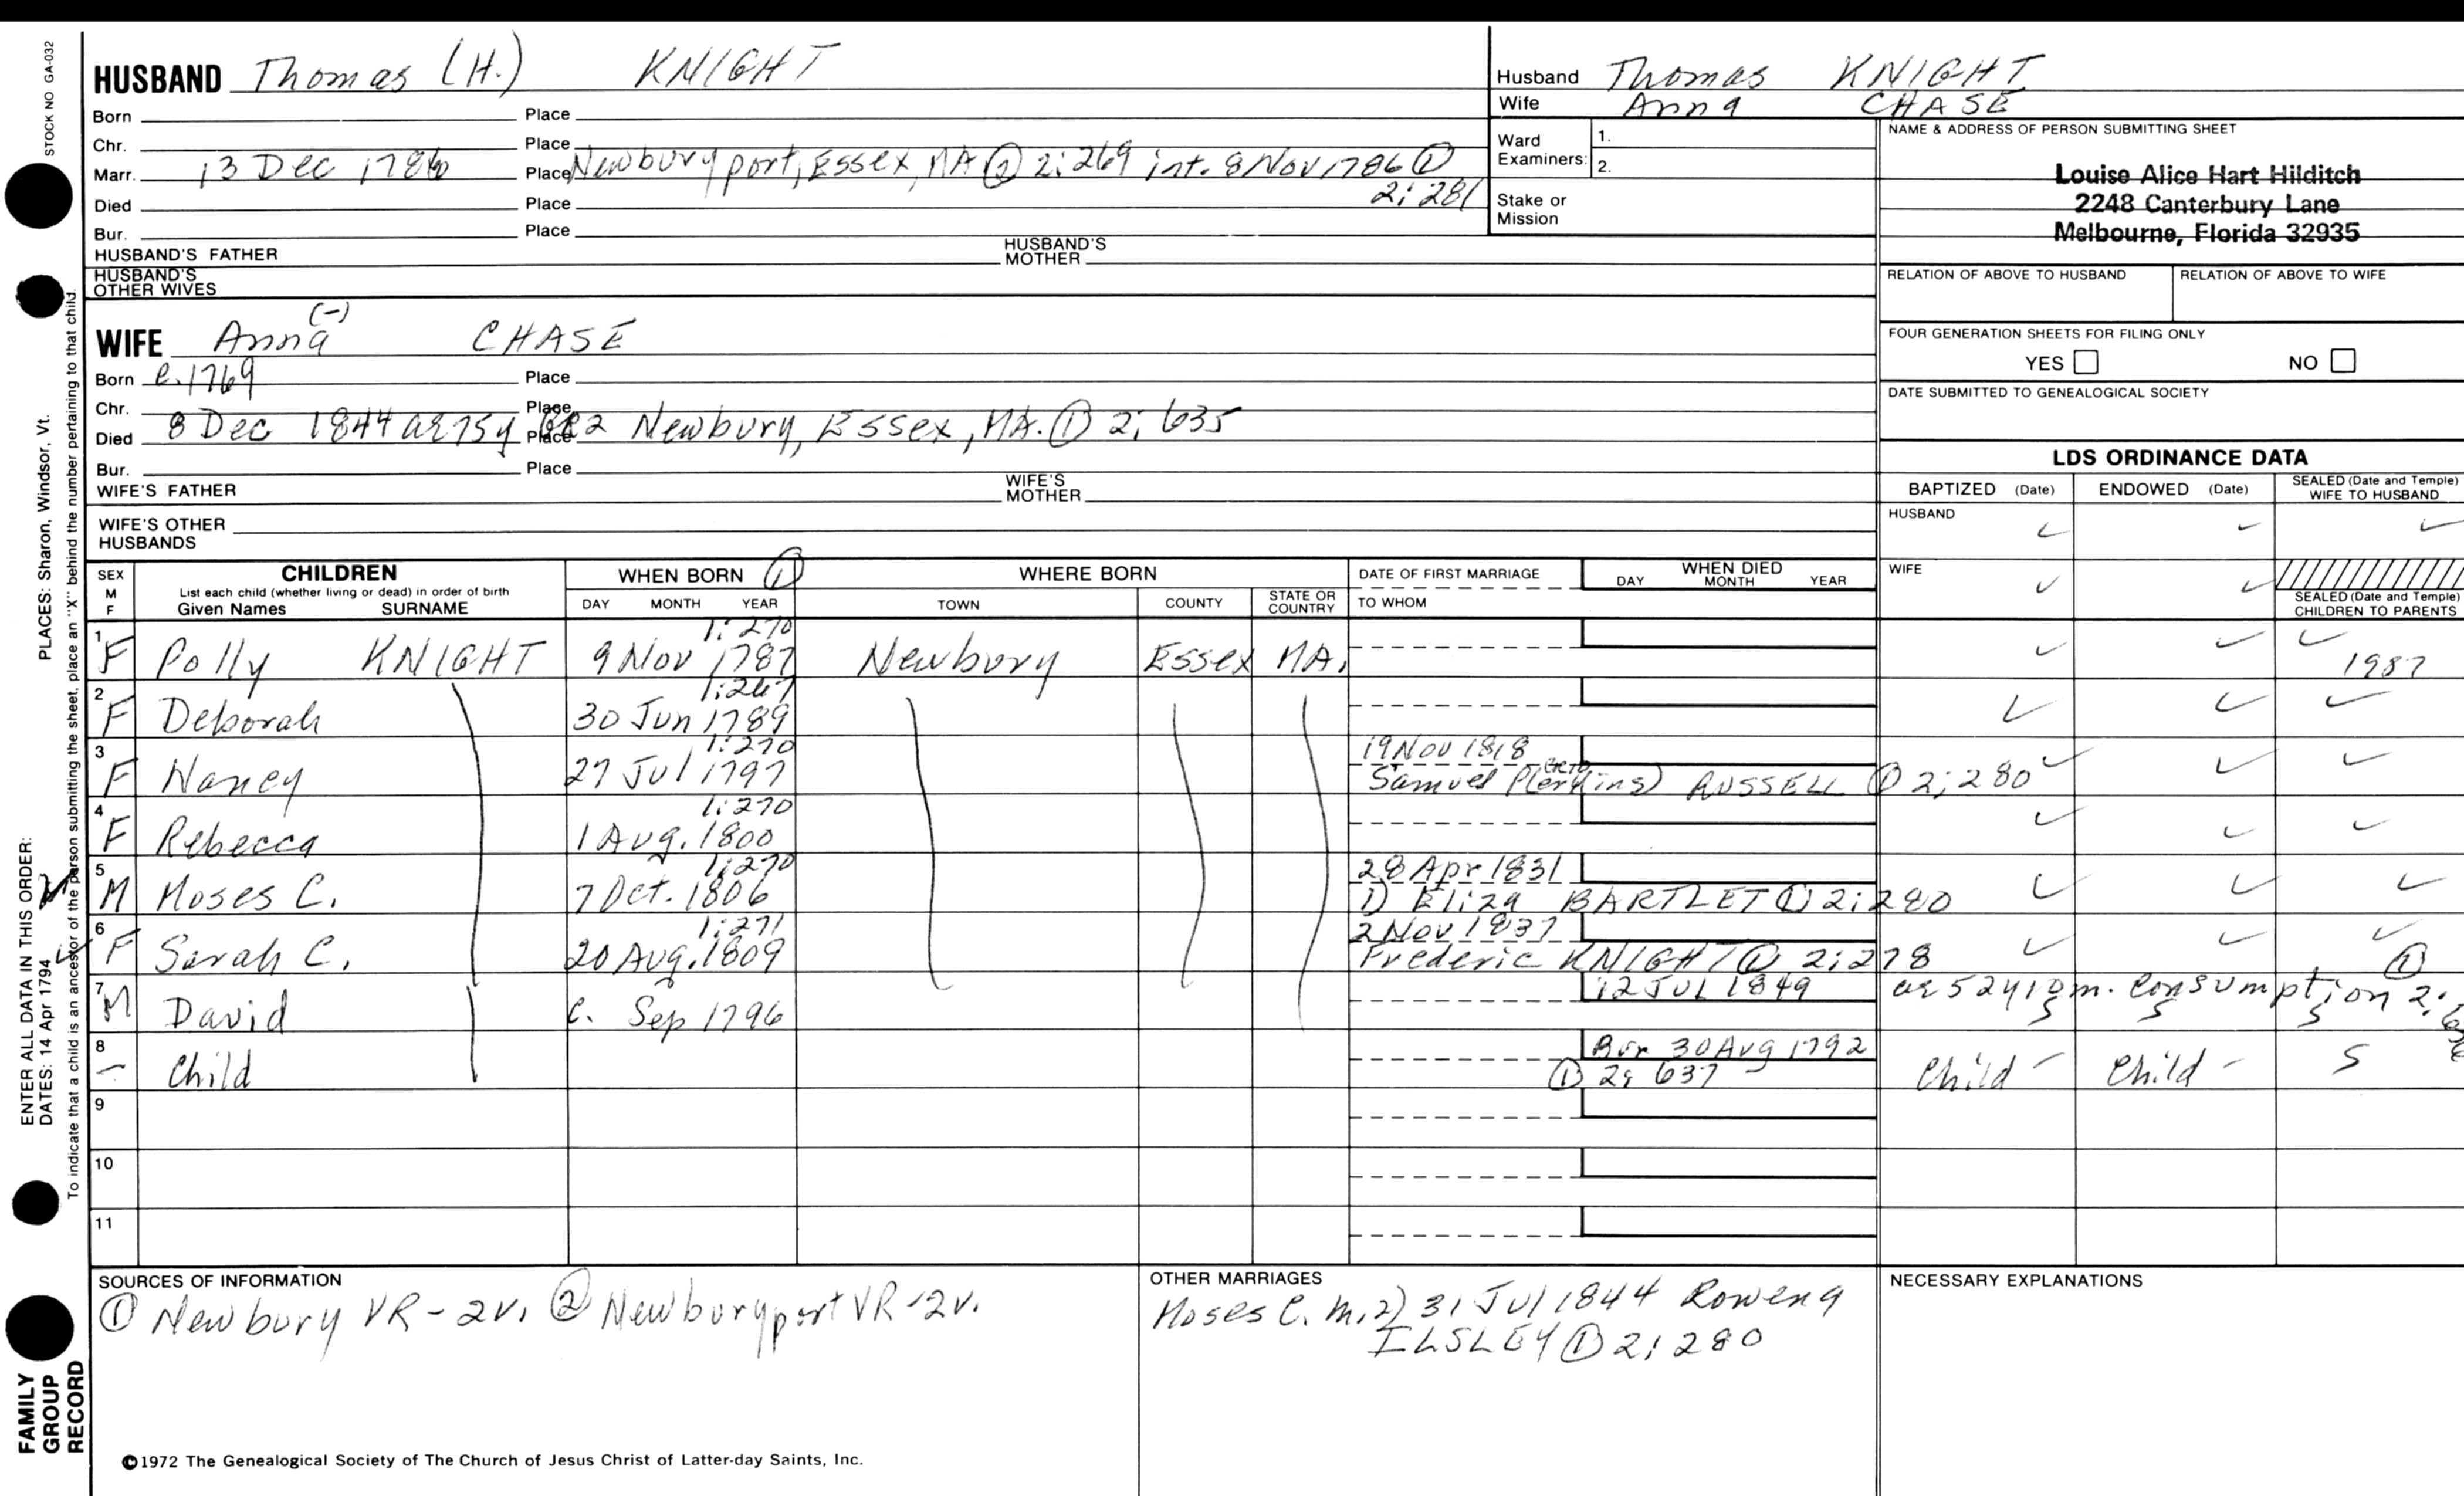 STOCK NO GA-032
HUSBAND Thomas (H.) KNIGHT
Born Place
Chr. Place
Marr. 13 Dec 1786 Place Newburyport, Essex, MA ② 2:269 int. 8 Nov 1786 ①
2:281
Died Place
Bur. Place
HUSBAND'S FATHER HUSBAND'S MOTHER
HUSBAND'S OTHER WIVES
Husband Thomas KNIGHT
Wife Anna CHASE
Ward Examiners: 1.
2.
Stake or Mission
NAME & ADDRESS OF PERSON SUBMITTING SHEET
Louise Alice Hart Hilditch
2248 Canterbury Lane
Melbourne, Florida 32935
RELATION OF ABOVE TO HUSBAND RELATION OF ABOVE TO WIFE
FOUR GENERATION SHEETS FOR FILING ONLY
YES NO
DATE SUBMITTED TO GENEALOGICAL SOCIETY
(-)
WIFE Anna CHASE
Born c.1769 Place
Chr. Place
Died 8 Dec 1844 ae 75y Place Newbury, Essex, MA. ① 2:635
Bur. Place
WIFE'S FATHER WIFE'S MOTHER
WIFE'S OTHER HUSBANDS
LDS ORDINANCE DATA
BAPTIZED (Date) ENDOWED (Date) SEALED (Date and Temple) WIFE TO HUSBAND
HUSBAND ✓ ✓ ✓
WIFE ✓ ✓
SEALED (Date and Temple) CHILDREN TO PARENTS
SEX M F
CHILDREN
List each child (whether living or dead) in order of birth
Given Names SURNAME
WHEN BORN ①
DAY MONTH YEAR
WHERE BORN
TOWN COUNTY STATE OR COUNTRY
DATE OF FIRST MARRIAGE
TO WHOM
WHEN DIED
DAY MONTH YEAR
1:270
1 F Polly KNIGHT 9 Nov 1787 Newbury Essex MA. ✓ ✓ ✓ 1987
1:267
2 F Deborah 30 Jun 1789 ✓ ✓ ✓
1:270 19 Nov 1818
3 F Nancy 27 Jul 1797 Samuel P(erkins) RUSSELL ① 2:280 ✓ ✓ ✓
1:270
4 F Rebecca 1 Aug. 1800 ✓ ✓ ✓
1:270 28 Apr 1831
5 M Moses C. 7 Oct. 1806 1) Eliza BARTLET ① 2:280 ✓ ✓ ✓
1:271 2 Nov 1837
6 F Sarah C. 20 Aug. 1809 Frederic KNIGHT ① 2:278 ✓ ✓ ✓
①
12 JUL 1849 ae 52y 10m. consumption 2:
7 M David c. Sep 1796 S S S
Bur 30 Aug 1792
8 - Child ① 2: 637 Child - Child - S
9
10
11
SOURCES OF INFORMATION
① Newbury VR - 2v. ② Newburyport VR - 2v.
OTHER MARRIAGES
Moses C. m. 2) 31 Jul 1844 Rowena
ILSLEY ① 2:280
NECESSARY EXPLANATIONS
©1972 The Genealogical Society of The Church of Jesus Christ of Latter-day Saints, Inc.
ENTER ALL DATA IN THIS ORDER:
DATES: 14 Apr 1794
PLACES: Sharon, Windsor, Vt.
To indicate that a child is an ancestor of the person submitting the sheet, place an "X" behind the number pertaining to that child.
FAMILY
GROUP
RECORD